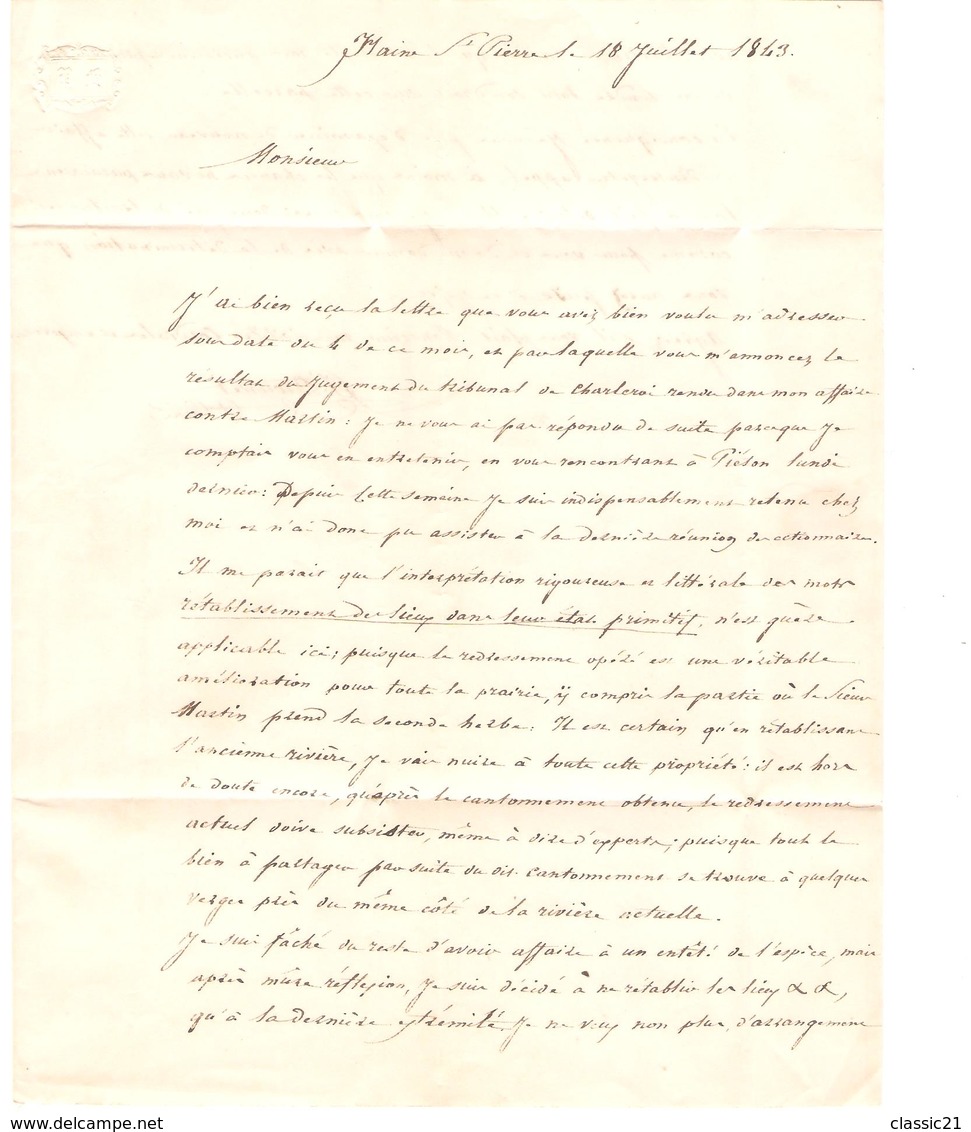 Haine St Pierre le 18 Juillet 1843.
Monsieur
J'ai bien reçu la lettre que vous avez bien voulu m'adresser
sous date du 4 de ce mois, et par laquelle vous m'annoncez le
résultat du Jugement du tribunal de Charleroi rendu dans mon affaire
contre Martin : Je ne vous ai pas répondu de suite parceque Je
comptais vous en entretenir, en vous rencontrant à Piéton lundi
dernier : Depuis cette semaine Je suis indispensablement retenu chez
moi et n'ai donc pu assister à la dernière réunion des actionnaires.
Il me parait que l'interprétation rigoureuse et littérale des mots
rétablissement des lieux dans leur état primitif, n'est guère
applicable ici ; puisque le redressement opéré est une véritable
amélioration pour toute la prairie, y compris la partie où le Sieur
Martin prend la seconde herbe : Il est certain qu'en rétablissant
l'ancienne rivière, Je vais nuire à toute cette propriété : il est hors
de doute encore, qu'après le cantonnement obtenu, le redressement
actuel doive subsister, même à dire d'experts ; puisque tout le
bien à partager par suite du dit cantonnement se trouve à quelques
verges près du même côté de la rivière actuelle.
Je suis fâché du reste d'avoir affaire à un entêté de l'espèce, mais
après mûre réflexion, Je suis décidé à ne rétablir les lieux & &,
qu'à la dernière extrémité. Je ne veux non plus, d'arrangement
classic21